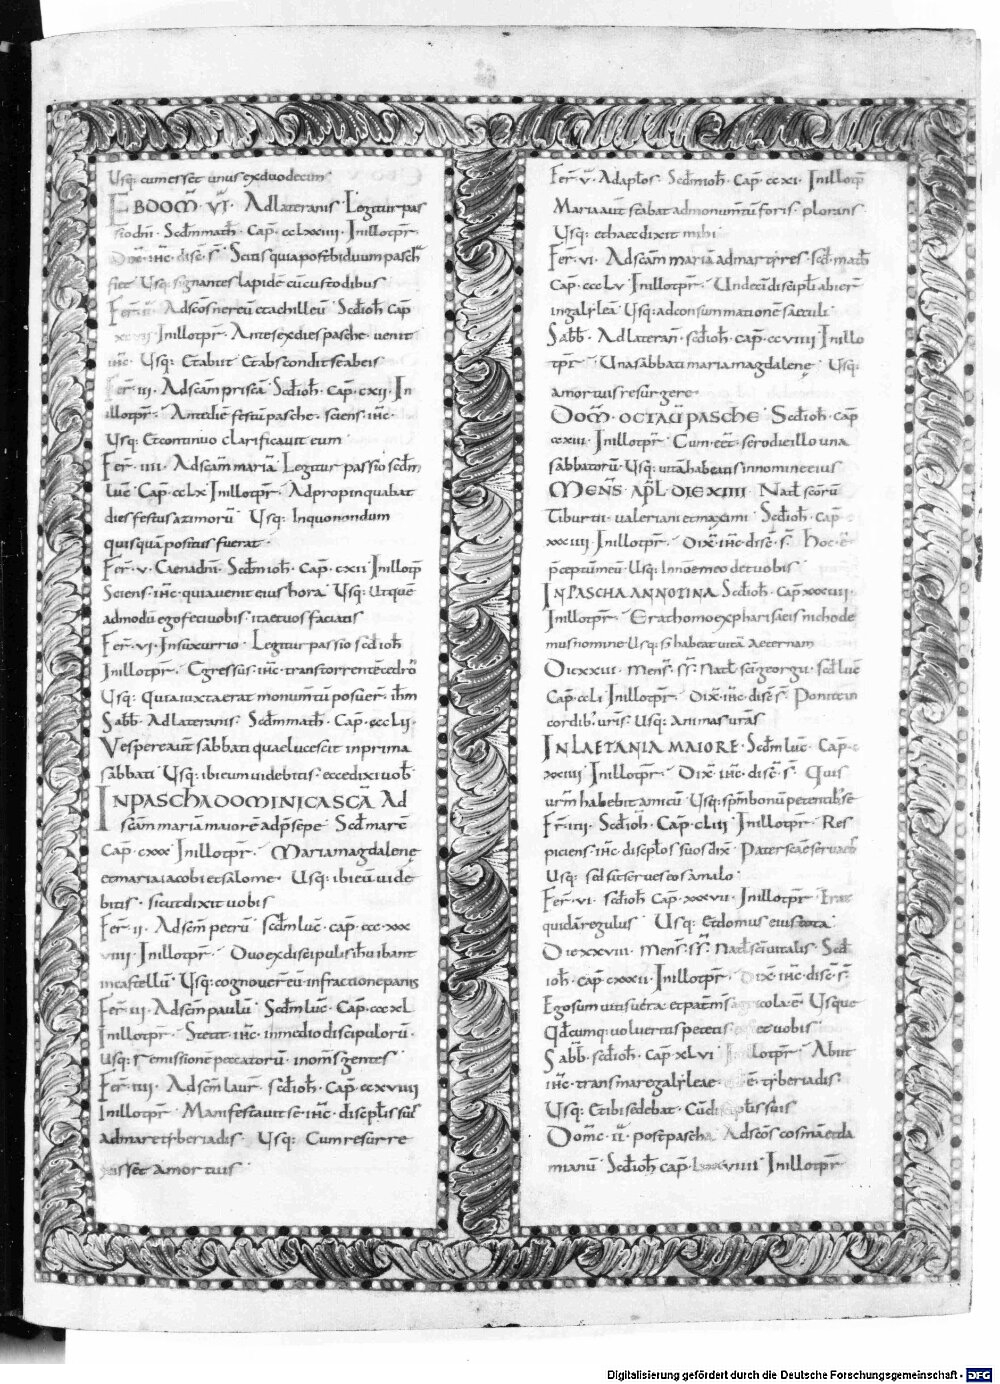 Usq: cum esset unus exduodecim
EBDOM̄ · VI · Adlateranis · Legitur pas
sio dn̄i · Scdm̄ math̄ · Cap̄ · cclxxiiii · Inillotpr̄ ·
Dix̄ · ih̄c · disc̄ · s̄ · Scitis quia post biduum pasch
fiet Usq: signantes lapidē cū custodibus
Fer̄ · ii · Adsc̄os nereū etachilleū · Scd̄ ioh̄ Cap̄
Inillotpr̄ · Ante sex dies pasche · uenit
ih̄c · Usq: Etabiit Etabscondit seabeis
Fer̄ · iii · Adsc̄am priscā · Scd̄ ioh̄ · Cap̄ · cxii · In
illotpr̄ · Antediē festū pasche · sciens · ih̄c ·
Usq: Etcontinuo clarificauit eum
Fer̄ · iiii · Adsc̄am mariā · Legitur passio scdm̄
luc̄ · Cap̄ · cclx Inillotpr̄ · Adpropinquabat
dies festus azimorū · Usq: Inquonondum
quisquā positus fuerat ·
Fer̄ · v · Caenadn̄i · Scdm̄ ioh̄ · Cap̄ · cxii Inillotp̄
Sciens · ih̄c · quia uenit eius hora · Usq: Utque
admodū ego feci uobis · itaetuos faciatis
Fer̄ · vi · Insuxurrio · Legitur passio scd̄ ioh̄
Inillotpr̄ · Egressus · ih̄c · transtorrentē cedrō
Usq: Quia iuxta erat monumtū posuer̄ · ih̄m
Sabb̄ · Adlateranis · Scdm̄ math̄ · Cap̄ · ccclii ·
Vespere aut̄ sabbati quae lucescit inprima
sabbati · Usq: ibi eum uidebitis · ecce dixi uob̄
INPASCHA DOMINICA SCĀ Ad
sc̄am mariā maiorē adp̄sepe · Scd̄ marc̄
Cap̄ · cxxx Inillotpr̄ · Maria magdalenę
etmaria iacobi etsalome · Usq: ibi eū uide
bitis · sicut dixit uobis
Fer̄ · ii · Adsc̄m petrū · scdm̄ luc̄ · cap̄ · ccc · xxx
viiii · Inillotpr̄ · Duo exdiscipulis ih̄u ibant
incastellū · Usq: cognouer̄ eū infractione panis
Fer̄ · iii · Adsc̄m paulū · Scdm̄ luc̄ · Cap̄ · cccxl
Inillotpr̄ · Stetit · ih̄c · inmedio discipulorū ·
Usq: remissionē peccatorū · inom̄s gentes
Fer̄ · iiii · Adsc̄m laur̄ · scd̄ ioh̄ · Cap̄ · ccxviiii
Inillotpr̄ · Manifestauit se · ih̄c · discpl̄is suis
admare tyberiadis · Usq: Cum resurre
xisset amortuis
Fer̄ · v · Adaplōs · Scdm̄ ioh̄ · Cap̄ · ccxi · Inillotp̄
Maria aut̄ stabat admonumtū foris · plorans
Usq: et haec dixit mihi
Fer̄ · vi · Adsc̄am mariā admartyres · scd̄ math̄
Cap̄ · ccclv Inillotpr̄ · Undecī discipl̄i abier̄
ingalyleā · Usq: adconsummationē saeculi
Sabb̄ · Adlateran̄ · scd̄ ioh̄ · cap̄ · ccviiii Inillo
tpr̄ · Una sabbati maria magdalenę · Usq:
amortuis resurgere ·
DOM̄ · OCTAŪ PASCHE · Scd̄ ioh̄ · Cap̄
ccxiii · Inillotpr̄ · Cum eēt · sero die illo una
sabbatorū · Usq: uitā habeatis innomine eius
MENS̄ · AP̄L · DIE XIIII · Nat̄ sc̄orū
Tiburtii · ualeriani etmaximi · Scd̄ ioh̄ · Cap̄ ·
Inillotpr̄ · Dix̄ · ih̄c · disc̄ · s̄ · Hoc · ē ·
p̄ceptū meū · Usq: Innōe meo det uobis
INPASCHA ANNOTINA Scd̄ ioh̄ · Cap̄ xxxiiii ·
Inillotpr̄ · Erat homo expharisaeis nichode
mus nomine Usq: s̄ habeat uitā aeternam
Die xxiii · Mens̄ · ss̄ · Nat̄ sc̄i georgii · scd̄ luc̄
Cap̄ · ccli Inillotpr̄ · Dix̄ · ih̄c · disc̄ s̄ · Ponite in
cordib; uris̄ · Usq: Animas uras̄
INLAETANIA MAIORE · Scdm̄ luc̄ · Cap̄ ·
Inillotpr̄ · Dix̄ · ih̄c · disc̄ · s̄ · Quis
urm̄ habebit amicū · Usq: spm̄ bonū petentib; se
Fr̄ · iiii · Scd̄ ioh̄ · Cap̄ · cliii Inillotpr̄ · Res
piciens · ih̄c · discplōs suos dix̄ · Pater scē serua eos
Usq: sed sit serues eos amalo ·
Fer̄ · vi · scd̄ ioh̄ · Cap̄ · xxxvii · Inillotpr̄ · Erat
quidā regulus · Usq: Etdomus eius tota
Die xxviii · Mens̄ · ss̄ · Nat̄ sc̄i uitalis · Scd̄
ioh̄ · cap̄ · cxxxii · Inillotpr̄ · Dix̄ · ih̄c · disc̄ · s̄
Ego sum uitis uera · et pat̄ m̄s agricola · ē · Usque
Qdcumq: uolueritis petetis et uobis
Sabb̄ · scd̄ ioh̄ · Cap̄ · xlvi Inillotpr̄ · Abiit
ih̄c · transmare galyleae · ē · tyberiadis ·
Usq: Etibi sedebat · Cū discipl̄is suis
Domc̄ · ii · postpascha Adsc̄os cosmā etda
mianū · Scd̄ ioh̄ cap̄ · Inillotpr̄ ·
Digitalisierung gefördert durch die Deutsche Forschungsgemeinschaft - DFG